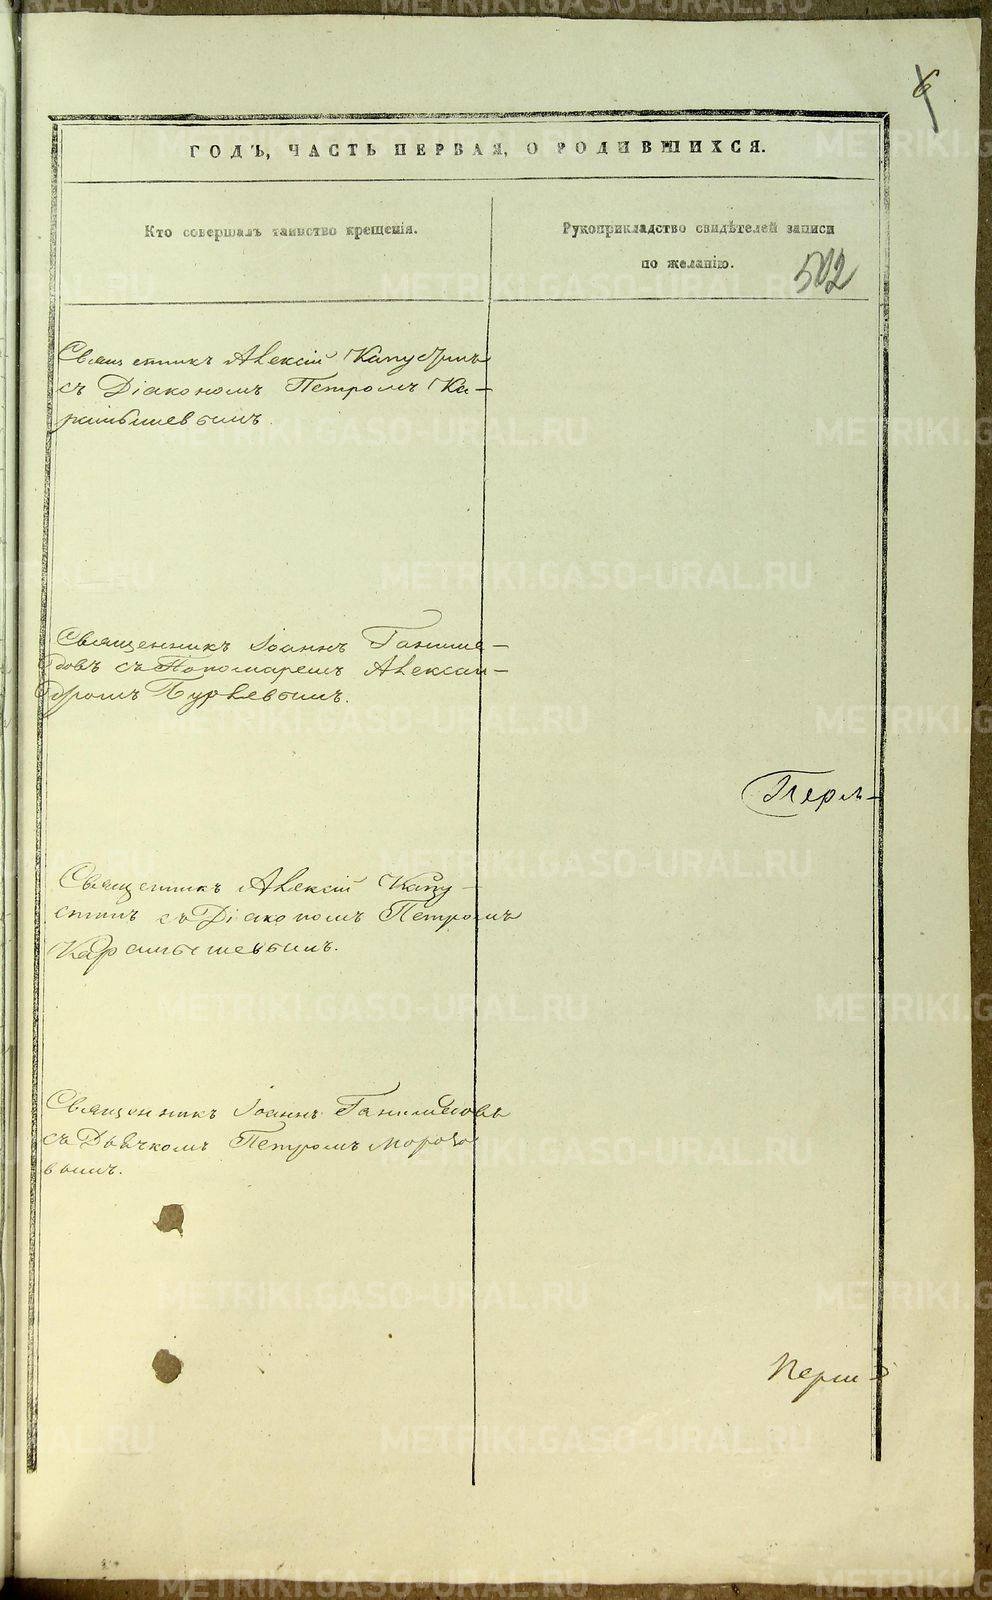 6
ГОДЪ, ЧАСТЬ ПЕРВАЯ, О РОДИВШИХСЯ.
Кто совершалъ таинство крещенія.
Рукоприкладство свидѣтелей записи
по желанію.
502
Священникъ Алексій Капустинъ
съ Діакономъ Петромъ Ка-
рамышевымъ.
Священникъ Іоаннъ
съ Пономаремъ Алексан-
дромъ
Перм-
Священникъ Алексій Капу-
стинъ съ Діакономъ Петромъ
Карамышевымъ.
Священникъ Іоаннъ
съ Дьячкомъ Петромъ Морозо
вымъ.
Перм
METRIKI.GASO-URAL.RU